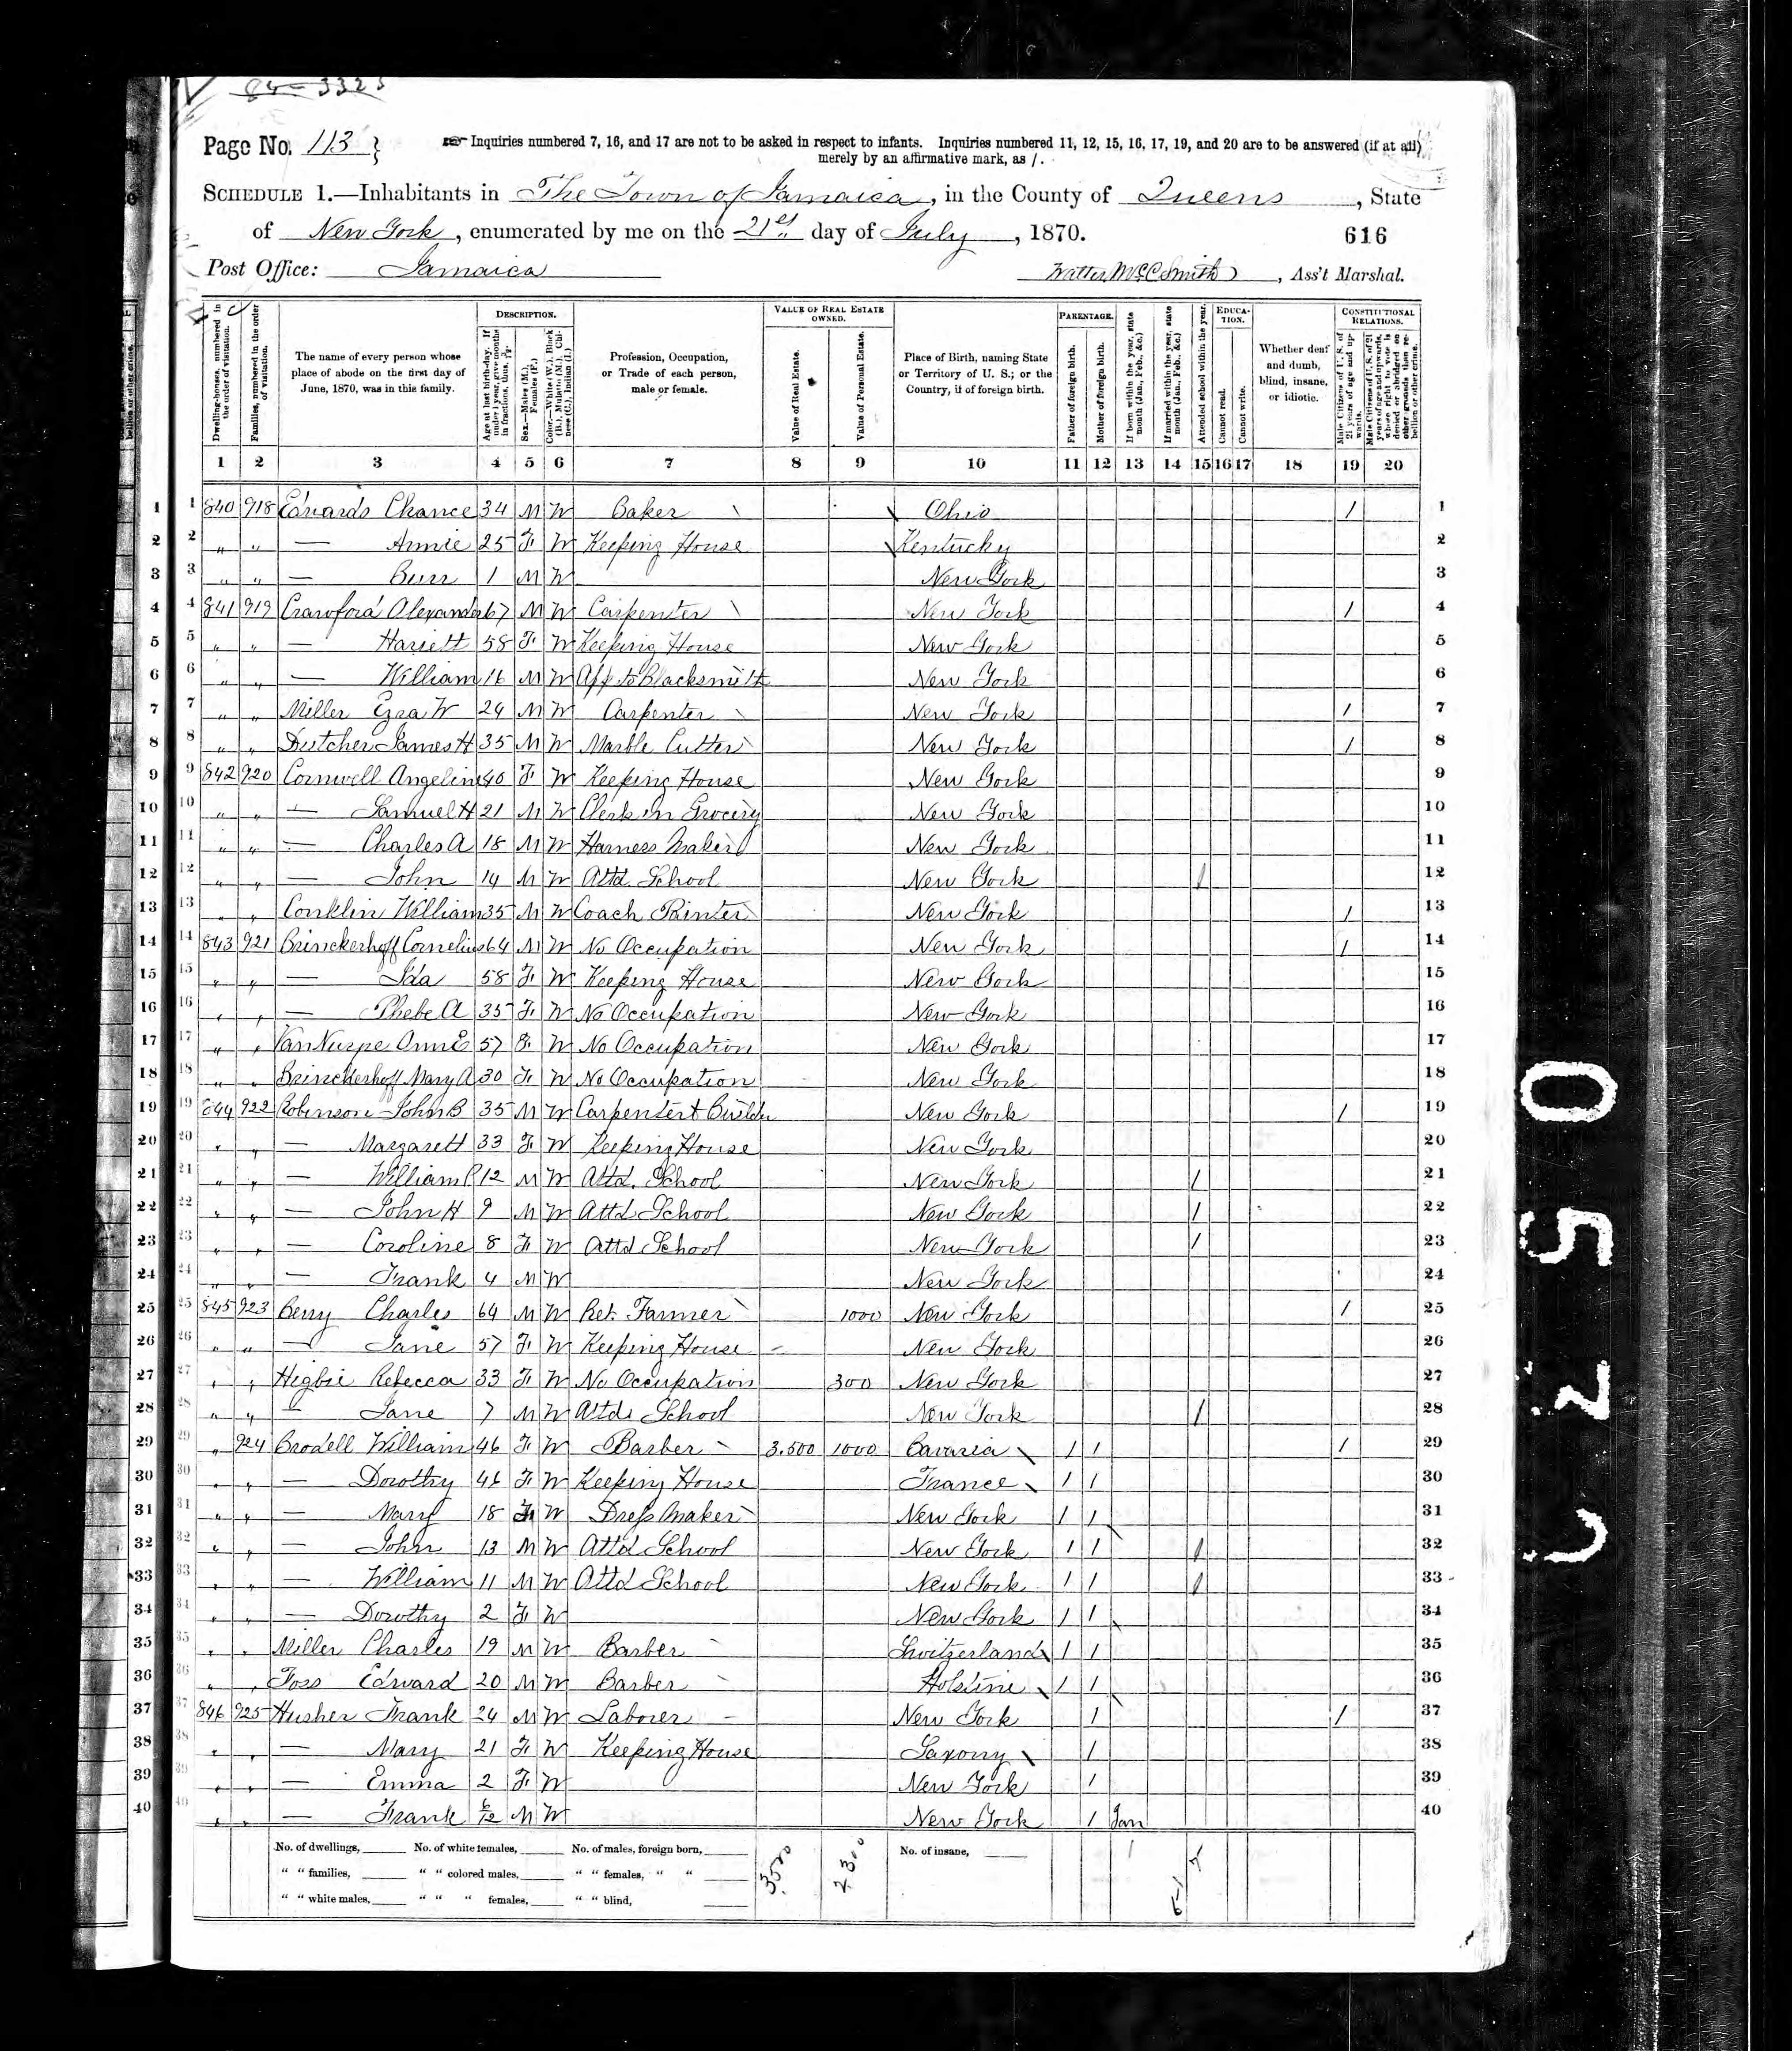 84-3323
Page No. 113
Inquiries numbered 7, 16, and 17 are not to be asked in respect to infants. Inquiries numbered 11, 12, 15, 16, 17, 19, and 20 are to be answered (if at all)
merely by an affirmative mark, as /.
SCHEDULE 1.—Inhabitants in The Town of Jamaica, in the County of Queens, State
of New York, enumerated by me on the 21st day of July, 1870.
616
Post Office: Jamaica
Walter McC Smith, Ass't Marshal.
Dwelling-houses, numbered in the order of visitation.
Families, numbered in the order of visitation.
The name of every person whose place of abode on the first day of June, 1870, was in this family.
DESCRIPTION.
Age at last birth-day. If under 1 year, give months in fractions, thus, 3/12.
Sex.—Males (M.), Females (F.)
Color.—White (W.), Black (B.), Mulatto (M.), Chinese (C.), Indian (I.)
Profession, Occupation, or Trade of each person, male or female.
VALUE OF REAL ESTATE OWNED.
Value of Real Estate.
Value of Personal Estate.
Place of Birth, naming State or Territory of U. S.; or the Country, if of foreign birth.
PARENTAGE.
Father of foreign birth.
Mother of foreign birth.
If born within the year, state month (Jan., Feb., &c.)
If married within the year, state month (Jan., Feb., &c.)
Attended school within the year.
EDUCATION.
Cannot read.
Cannot write.
Whether deaf and dumb, blind, insane, or idiotic.
CONSTITUTIONAL RELATIONS.
Male Citizens of U. S. of 21 years of age and upwards.
Male Citizens of U. S. of 21 years of age and upwards, whose right to vote is denied or abridged on other grounds than rebellion or other crime.
1 2 3 4 5 6 7 8 9 10 11 12 13 14 15 16 17 18 19 20
1 840 918 Edwards Chance 34 M W Baker Ohio / 1
2 " " — Annie 25 F W Keeping House Kentucky 2
3 " " — Burr 1 M W New York 3
4 841 919 Crawford Alexander 67 M W Carpenter New York / 4
5 " " — Hariett 58 F W Keeping House New York 5
6 " " — William 16 M W App to Blacksmith New York 6
7 " " Miller Ezra W 24 M W Carpenter New York / 7
8 " " Dutcher James H 35 M W Marble Cutter New York / 8
9 842 920 Cornwell Angeline 40 F W Keeping House New York 9
10 " " — Samuel H 21 M W Clerk in Grocery New York 10
11 " " — Charles A 18 M W Harness Maker New York 11
12 " " — John 14 M W Attd. School New York / 12
13 " " Conklin William 35 M W Coach Painter New York / 13
14 843 921 Brinckerhoff Cornelius 64 M W No Occupation New York / 14
15 " " — Ida 58 F W Keeping House New York 15
16 " " — Phebe A 35 F W No Occupation New York 16
17 " " 57 F W No Occupation New York 17
18 " " Brinckerhoff Mary A 30 F W No Occupation New York 18
19 844 922 Robinson John B 35 M W Carpenter & Builder New York / 19
20 " " — Margarett 33 F W Keeping House New York 20
21 " " — William 12 M W Attd. School New York / 21
22 " " — John H 9 M W Attd School New York / 22
23 " " — Coroline 8 F W Attd School New York / 23
24 " " — Frank 4 M W New York 24
25 845 923 Berry Charles 64 M W Ret. Farmer 1000 New York / 25
26 " " — Jane 57 F W Keeping House New York 26
27 " " Higbie Rebecca 33 F W No Occupation 300 New York 27
28 " " — Jane 7 M W Attd School New York / 28
29 " 924 Brodell William 46 F W Barber 3.500 1000 Bavaria / / / 29
30 " " — Dorothy 46 F W Keeping House France / / 30
31 " " — Mary 18 F W Dress Maker New York / / 31
32 " " — John 13 M W Attd School New York / / / 32
33 " " — William 11 M W Attd School New York / / / 33
34 " " — Dorothy 2 F W New York / / 34
35 " " Miller Charles 19 M W Barber Switzerland / / 35
36 " " Foss Edward 20 M W Barber Holstine / / 36
37 846 925 Husher Frank 24 M W Laborer New York / / 37
38 " " — Mary 21 F W Keeping House Saxony / 38
39 " " — Emma 2 F W New York / 39
40 " " — Frank 6/12 M W New York / Jan 40
No. of dwellings, No. of white females, No. of males, foreign born, No. of insane,
" " families, " " colored males, " " females, " "
" " white males, " " " females, " " blind,
3500
2300
1
7